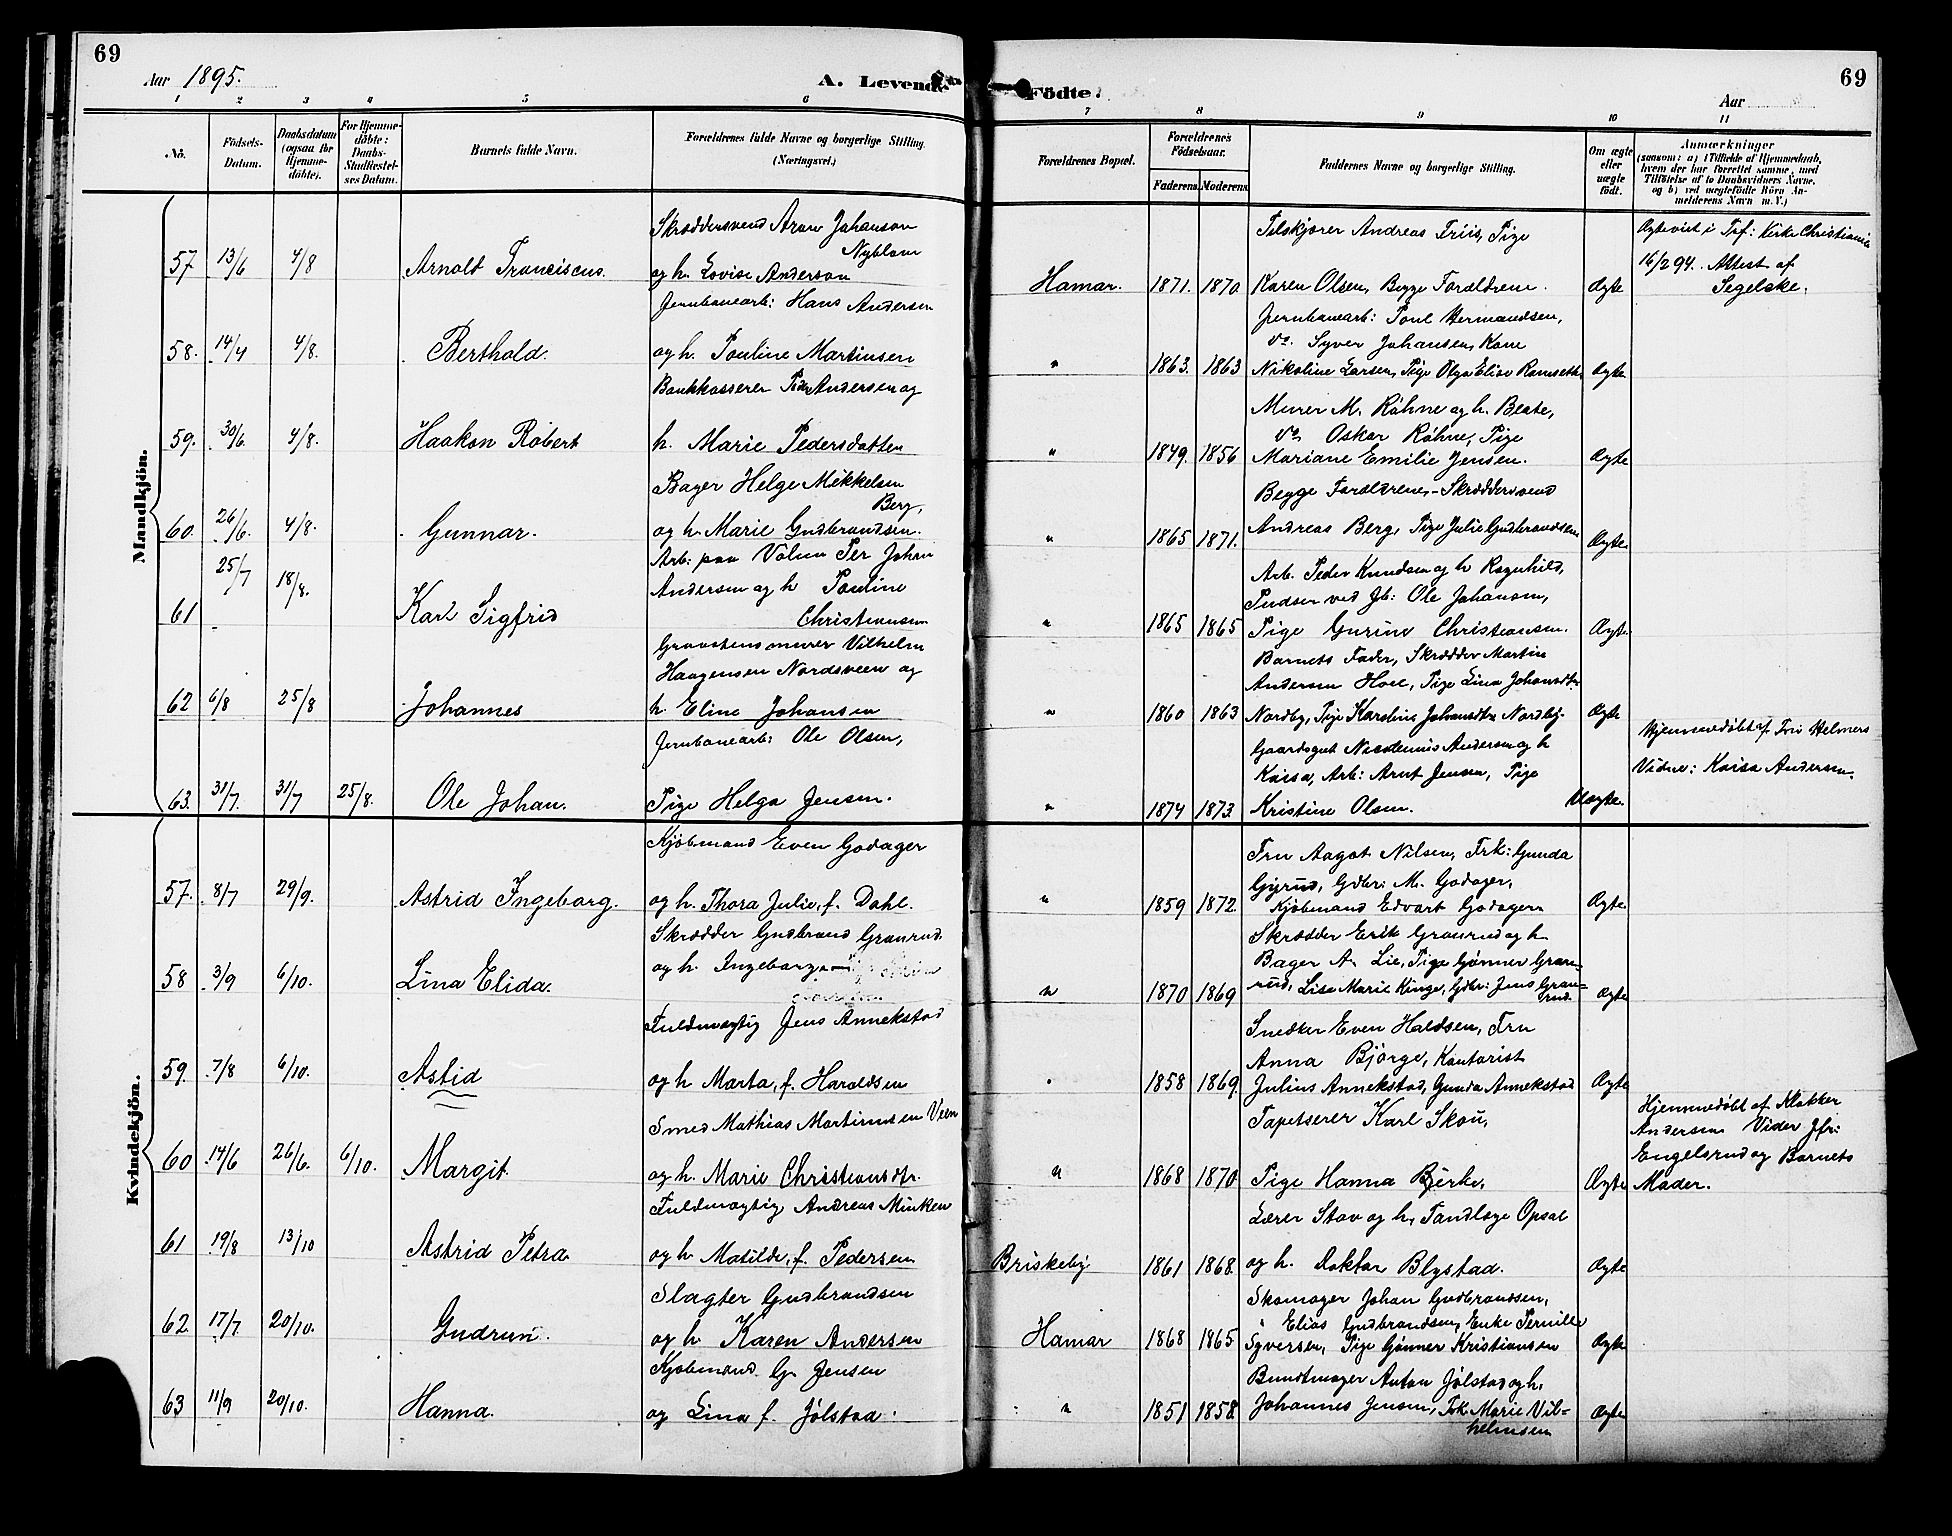 69
69
Aar 1895.
A. Levende Födte.
Aar
1 2 3 4 5 6 7 8 9 10 11
No.
Födsels-Datum.
Daabsdatum (ogsaa for Hjemme-döbte).
For Hjemme-döbte: Daabs-Stadfæstel-ses Datum.
Barnets fulde Navn.
Forældrenes fulde Navne og borgerlige Stilling. (Næringsvei.)
Forældrenes Bopæl.
Forældrenes Födselsaar.
Faderens. Moderens.
Faddernes Navne og borgerlige Stilling.
Om ægte eller uægte födt.
Anmærkninger
(saasom: a) i Tilfælde af Hjemmedaab,
hvem der har forrettet samme, med
Tilföielse af to Daabsvidners Navne,
og b) ved uægtefödte Börn An-
melderens Navn m. V.)
Mandkjön.
Skræddersvend Aron Johanson
Nyblom
57 13/6 4/8 Arnolt Franciscus. og h. Lovise Anderson
Hamar. 1871. 1870
Andreas Friis, Pige
Karen Olsen, Begge Forældrene. Ægte
Ægteviet i Trf: Kirke Christiania
16/2 94. Attest af
Segelske.
Jernbanearb: Hans Andersen
58. 14/4 4/8. Berthold. og h. Pouline Martinsen
" 1863. 1863
Jernbanearb: Poul Hermandsen,
do. Syver Johansen, Kone
Nikoline Larsen, Pige Olga Elise Ramseth Ægte
Bankkasserer Peder Andersen og
59. 30/6. 4/8. Haakon Robert h. Marie Pedersdatter
" 1849. 1856
Murer M. Röhne og h. Beate,
do. Oskar Röhne, Pige
Mariane Emilie Jensen. Ægte
Bager Helge Mikkelsen
Berg,
60. 26/6. 4/8. Gunnar. og h. Marie Gudbrandsen.
" 1865 1871.
Begge Forældrene, Skræddersvend
Andreas Berg, Pige Julie Gudbrandsen Ægte
Arb: paa Volun Per Johan
25/7 18/8. Andersen og h Pouline
61 Karl Sigfrid Christiansen
" 1865 1865
Arb. Peder Knudsen og h Ragnhild,
Pudser ved Jb: Ole Johansen,
Pige Gurine Christiansen. Ægte
Graastensmurer Vilhelm
Haagensen Nordsveen og
62 6/8 25/8 Johannes h. Eline Johansen
" 1860 1863
Barnets Fader, Skrædder Martin
Andersen Hoel, Pige Lina Johansdtr.
Nordby, Pige Karoline Johansdtr Nordby. Ægte
Jernbanearb: Ole Olsen,
63. 31/7. 31/7 25/8. Ole Johan. Pige Helga Jensen.
" 1874 1873.
Gaardsgut Nicolenus Andersen og h
Kaisa, Arb: Arnt Jensen, Pige
Kristine Olsen. Uægte.
Hjemmedøbt af Fru Helmers
Vidne: Kaisa Andersen.
Kvindekjön.
Kjøbmand Even Godager
57. 8/7 29/9. Astrid Ingeborg. og h. Thora Julie, f. Dahl.
" 1859 1872.
Fru Aagot Nilsen, Frk: Gunda
Gjørud, Gdbr: M. Godager,
Kjøbmand Edvart Godager Ægte
Skrædder Gudbrand Granrud.
58 3/9 6/10. Lina Elida. og h. Ingeborg
" 1870 1869
Skrædder Erik Granrud og h
Bager A. Lie, Pige Gønner Gran-
rud, Lise Marie Kinge, Gdbr: Jens Gran-
rud. Ægte
Fuldmægtig Jens Annekstad
59. 7/8 6/10. Astid og h Marta, f. Haroldsen
" 1858 1869.
Snedker Even Haldsen, Fru
Anna Bjørge, Kontorist
Julius Annekstad, Gunda Annekstad Ægte
Smed Mathias Martinusen Veen
60 14/6 26/6. 6/10. Margit. og h. Marie Christiansdtr.
" 1868 1870
Tapetserer Karl Skou,
Pige Hanna Bjerke, Ægte
Hjemmedøbt af Klokker
Andersen Vidner Jfr:
Engelsrud og Barnets
Moder.
Fuldmægtig Andreas Minken
61 19/8 13/10 Astrid Petra og h. Matilde, f. Pedersen
Briskeby 1861 1868.
Lærer Stav og h, Tandlæge Opsal
og h. Doktor Blystad. Ægte
Slagter Gudbrandsen
62 17/7 20/10. Gudrun. og h. Karen Andersen
Hamar 1868 1865
Skomager Johan Gudbrandsen,
" Elias Gudbrandsen, Enke Pernille
Syversen, Pige Gønner Kristiansen Ægte
Kjøbmand. G. Jensen
63 11/9 20/10. Hanna. og Lina f. Jølstad.
" 1851 1858.
Bundtmager Anton Jølstad og h,
Johannes Jensen, Frk. Marie Vil-
helmsen Ægte